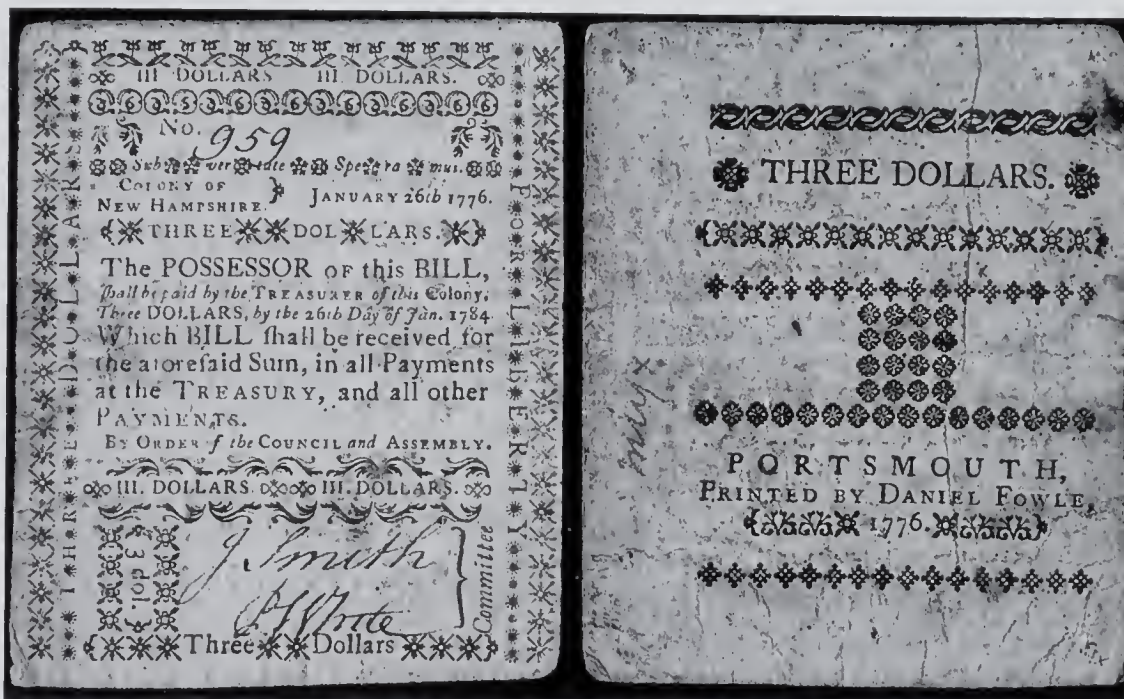 III DOLLARS III. DOLLARS.
No. 959
Sub ver tate Spe ra mus.
COLONY OF
NEW HAMPSHIRE. } JANUARY 26th 1776.
THREE DOL LARS.
The POSSESSOR OF this BILL,
ſhall be paid by the TREASURER of this Colony,
Three DOLLARS, by the 26th Day of Jan. 1784.
Which BILL ſhall be received for
the aforeſaid Sum, in all Payments
at the TREASURY, and all other
PAYMENTS.
BY ORDER f the COUNCIL and ASSEMBLY.
III. DOLLARS. III. DOLLARS.
3 dol.
J. Smith
Committee
Three Dollars
THREE DOLLARS
FOR LIbERTY
THREE DOLLARS.
PORTSMOUTH,
PRINTED BY DANIEL FOWLE,
1776.